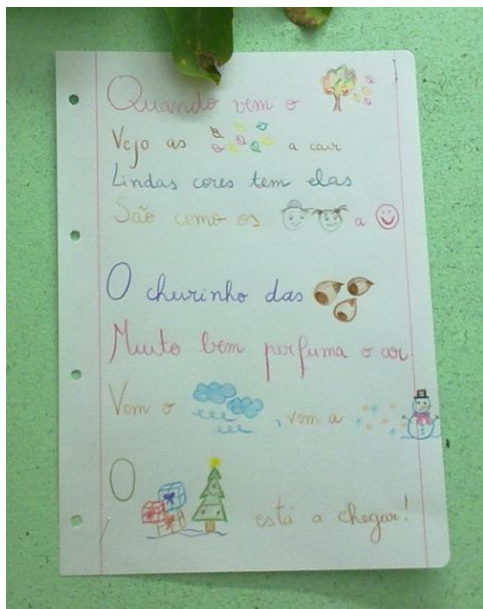 Quando vem o
Vejo as a cair
Lindas cores tem elas
São como os a
O cheirinho das
Muito bem perfuma o ar
Vem o , vem a
O está a chegar!